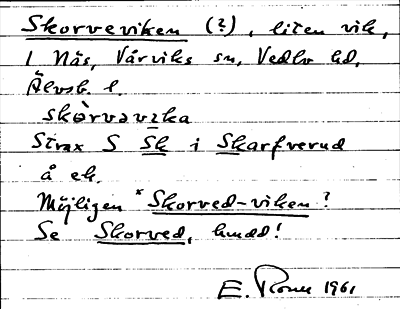 Skorveviken (?), liten vik,
i Näs, Vårviks sn, Vedbo hd,
Älvsb. l.
skòrvəvika
Strax S Sk i Skarfverud
å ek.
Möjligen *Skorved-viken?
Se Skorved, hmdd!
E. 1961